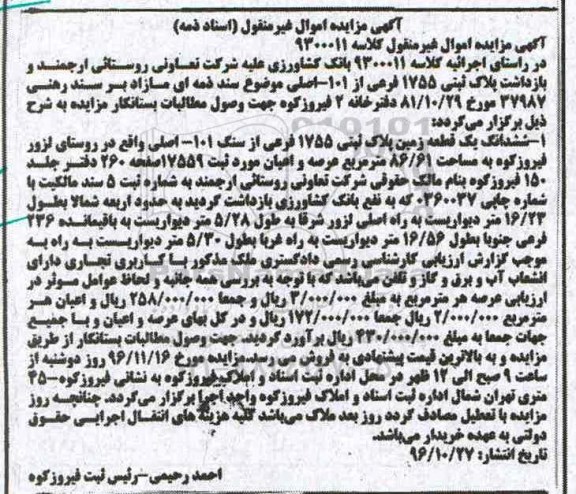 آگهی مزایده اموال غیرمنقول (اسناد ذمه)
آگهی مزایده اموال غیرمنقول کلاسه ۹۳۰۰۰۱۱
در راستای اجرائیه کلاسه ۹۳۰۰۰۱۱ بانک کشاورزی علیه شرکت تعاونی روستائی ارجمند و
بازداشت پلاک ثبتی ۱۷۵۵ فرعی از ۱۰۱-اصلی موضوع سند ذمه ای مازاد بر سند رهنی
۳۷۹۸۷ مورخ ۸۱/۱۰/۲۹ دفترخانه ۲ فیروزکوه جهت وصول مطالبات بستانکار مزایده به شرح
ذیل برگزار می‌گردد:
۱-ششدانگ یک قطعه زمین پلاک ثبتی ۱۷۵۵ فرعی از سنگ ۱۰۱- اصلی واقع در روستای لزور
فیروزکوه به مساحت ۸۶/۶۱ مترمربع عرصه و اعیان مورد ثبت ۱۷۵۵۹صفحه ۲۶۰ دفتر جلد
۱۵۰ فیروزکوه بنام مالک حقوقی شرکت تعاونی روستائی ارجمند به شماره ثبت ۵ سند مالکیت با
شماره چاپی ۰۳۶۰۰۳۷ که به نفع بانک کشاورزی بازداشت گردید به حدود اربعه شمالا بطول
۱۶/۲۳ متر دیواریست به راه اصلی لزور شرقا به طول ۵/۲۸ متر دیواریست به باقیمانده ۲۳۶
فرعی جنوبا بطول ۱۶/۵۶ متر دیواریست به راه غربا بطول ۵/۳۰ متر دیواریست به راه به
موجب گزارش ارزیابی کارشناسی رسمی دادگستری ملک مذکور با کاربری تجاری دارای
انشعاب آب و برق و گاز و تلفن می‌باشد که با توجه به بررسی همه جانبه و لحاظ عوامل موثر در
ارزیابی عرصه هر مترمربع به مبلغ ۳/۰۰۰/۰۰۰ ریال و جمعا ۲۵۸/۰۰۰/۰۰۰ ریال و اعیان هر
مترمربع ۲/۰۰۰/۰۰۰ ریال جمعا ۱۷۲/۰۰۰/۰۰۰ ریال و در کل بهای عرصه و اعیان و با جمیع
جهات جمعا به مبلغ ۴۳۰/۰۰/۰۰۰ ریال برآورد گردید. جهت وصول مطالبات بستانکار از طریق
مزایده و به بالاترین قیمت پیشنهادی به فروش می‌رسد.مزایده مورخ ۹۶/۱۱/۱۶ روز دوشنبه از
ساعت ۹ صبح الی ۱۲ ظهر در محل اداره ثبت اسناد و املاک فیروزکوه به نشانی فیروزکوه-۴۵
متری تهران شمال اداره ثبت اسناد و املاک فیروزکوه واحد اجرا برگزار می‌گردد. چنانچه روز
مزایده با تعطیل مصادف گردد روز بعد ملاک می‌باشد کلیه هزینه های انتقال اجرایی حقوق
دولتی به عهده خریدار می‌باشد.
تاریخ انتشار: ۹۶/۱۰/۲۷
احمد رحیمی-رئیس ثبت فیروزکوه